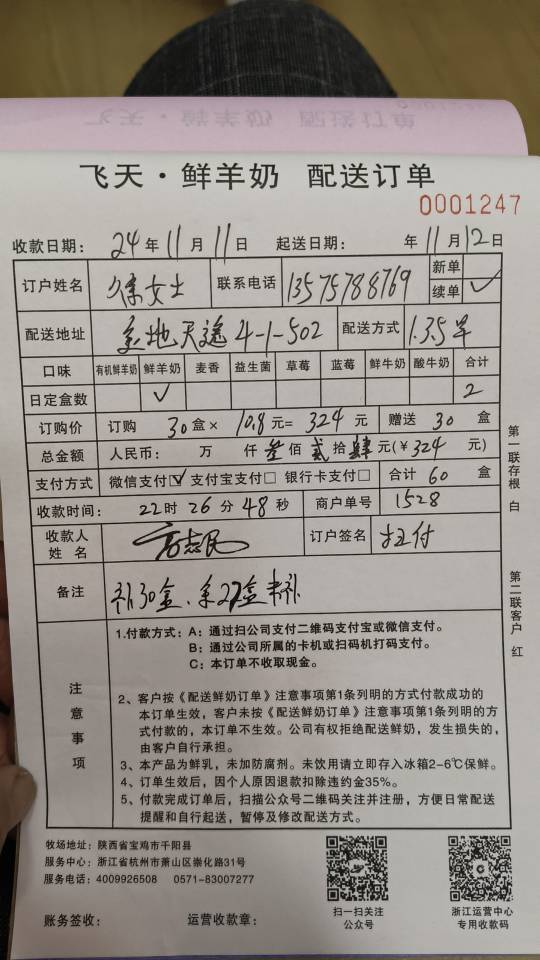 飞天·鲜羊奶 配送订单
0001247
收款日期: 24年11月11日 起送日期: 年11月12日
订户姓名 徐女士 联系电话 13575788769 新单
续单 √
配送地址 天逸4-1-502 配送方式 1.3.5早
口味 有机鲜羊奶 鲜羊奶 麦香 益生菌 草莓 蓝莓 鲜牛奶 酸牛奶 合计
日定盒数 √ 2
订购价 订购 30盒× 10.8元= 324元 赠送 30盒
总金额 人民币: 万 仟 叁佰 贰拾 肆元(￥324 元)
支付方式 微信支付☑ 支付宝支付□ 银行卡支付□ 合计 60 盒
收款时间: 22时 26分 48秒 商户单号 1528
收款人
姓 名 志民 订户签名 付
备注 补30盒、余27盒未补
第一联存根 白
第二联客户 红
注意事项
1.付款方式: A: 通过扫公司支付二维码支付宝或微信支付。
B: 通过公司所属的卡机或扫码机打码支付。
C: 本订单不收取现金。
2、客户按《配送鲜奶订单》注意事项第1条列明的方式付款成功的
本订单生效，客户未按《配送鲜奶订单》注意事项第1条列明的方
式付款的，本订单不生效。公司有权拒绝配送鲜奶，发生损失的，
由客户自行承担。
3、本产品为鲜乳，未加防腐剂。未饮用请立即存入冰箱2-6℃保鲜。
4、订单生效后，因个人原因退款扣除违约金35%。
5、付款完成订单后，扫描公众号二维码关注并注册，方便日常配送
提醒和自行起送，暂停及修改配送方式。
牧场地址: 陕西省宝鸡市千阳县
服务中心: 浙江省杭州市萧山区崇化路31号
服务电话: 4009926508 0571-83007277
扫一扫关注
公众号
浙江运营中心
专用收款码
账务签收: 运营收款章: